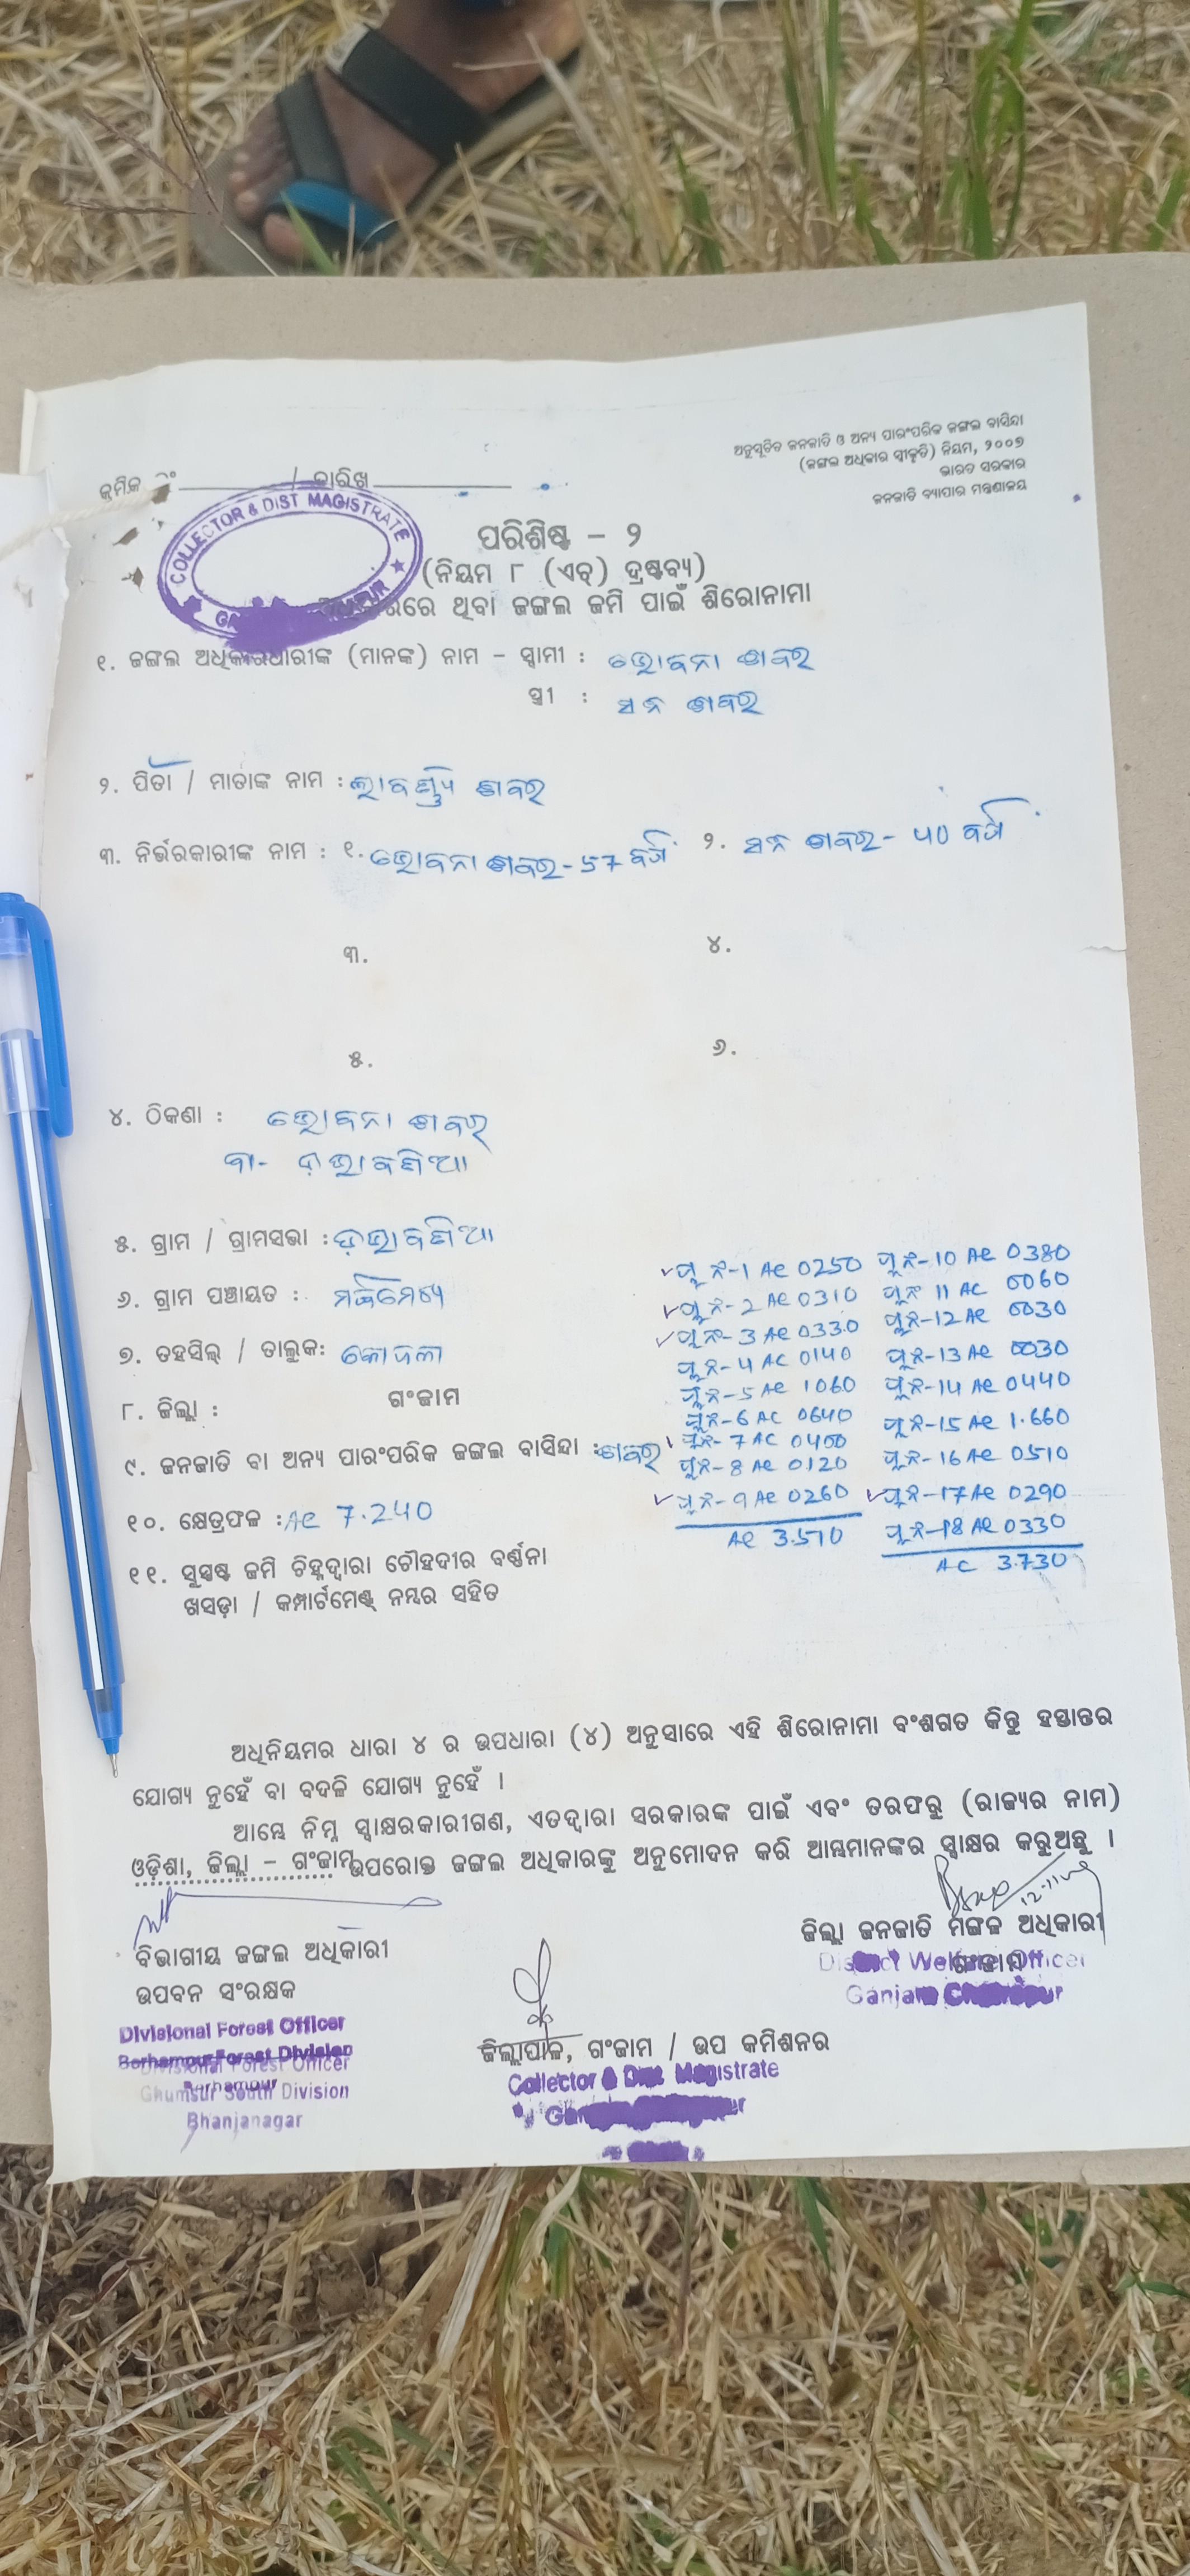 ଅନୁସୂଚିତ ଜନଜାତି ଓ ଅନ୍ୟ ପାରଂପରିକ ଜଙ୍ଗଲ ବାସିନ୍ଦା
(ଜଙ୍ଗଲ ଅଧିକାର ସ୍ୱୀକୃତି) ନିୟମ, ୨୦୦୭
ଭାରତ ସରକାର
ଜନଜାତି ବ୍ୟାପାର ମନ୍ତ୍ରଣାଳୟ
କ୍ରମିକ ନଂ / ତାରିଖ
COLLECTOR & DIST MAGISTRATE
ପରିଶିଷ୍ଟ – ୨
(ନିୟମ ୮ (ଏଚ୍) ଦ୍ରଷ୍ଟବ୍ୟ)
ଅଧିକାରରେ ଥିବା ଜଙ୍ଗଲ ଜମି ପାଇଁ ଶିରୋନାମା
୧. ଜଙ୍ଗଲ ଅଧିକାରଧାରୀଙ୍କ (ମାନଙ୍କ) ନାମ – ସ୍ୱାମୀ : ଭୋବନା ଶବର
ସ୍ତ୍ରୀ : ସନ ଶବର
୨. ପିତା / ମାତାଙ୍କ ନାମ : ଶବର
୩. ନିର୍ଭରକାରୀଙ୍କ ନାମ : ୧. ଭୋବନା ଶବର - 57 ବର୍ଷ ୨. ସନ ଶବର - ୪0 ବର୍ଷ
୩. ୪.
୫. ୬.
୪. ଠିକଣା : ଭୋବନା ଶବର
୫. ଗ୍ରାମ / ଗ୍ରାମସଭା :
୬. ଗ୍ରାମ ପଞ୍ଚାୟତ :
୭. ତହସିଲ୍ / ତାଲୁକ: କୋଦଳା
୮. ଜିଲ୍ଲା : ଗଂଜାମ
୯. ଜନଜାତି ବା ଅନ୍ୟ ପାରଂପରିକ ଜଙ୍ଗଲ ବାସିନ୍ଦା : ଶବର
୧୦. କ୍ଷେତ୍ରଫଳ : AC 7.240
୧୧. ସୁସ୍ପଷ୍ଟ ଜମି ଚିହ୍ନଦ୍ୱାରା ଚୌହଦୀର ବର୍ଣ୍ଣନା
ଖସଡ଼ା / କମ୍ପାର୍ଟମେଣ୍ଟ୍ ନମ୍ବର ସହିତ
ପ୍ଲ ନଂ-1 AC 0250
ପ୍ଲ ନଂ-2 AC 0310
ପ୍ଲ ନଂ-3 AC 0330
ପ୍ଲ ନଂ-4 AC 0140
ପ୍ଲ ନଂ-5 AC 1060
ପ୍ଲ ନଂ-6 AC 0640
ପ୍ଲ ନଂ-7 AC 0400
ପ୍ଲ ନଂ-8 AC 0120
ପ୍ଲ ନଂ-9 AC 0260
AC 3.510
ପ୍ଲ ନଂ-10 AC 0380
ପ୍ଲ ନଂ 11 AC 0060
ପ୍ଲ ନଂ-12 AC 0030
ପ୍ଲ ନଂ-13 AC 0030
ପ୍ଲ ନଂ-14 AC 0440
ପ୍ଲ ନଂ-15 AC 1.660
ପ୍ଲ ନଂ-16 AC 0510
ପ୍ଲ ନଂ-17 AC 0290
ପ୍ଲ ନଂ-18 AC 0330
AC 3.730
ଅଧିନିୟମର ଧାରା ୪ ର ଉପଧାରା (୪) ଅନୁସାରେ ଏହି ଶିରୋନାମା ବଂଶଗତ କିନ୍ତୁ ହସ୍ତାନ୍ତର
ଯୋଗ୍ୟ ନୁହେଁ ବା ବଦଳି ଯୋଗ୍ୟ ନୁହେଁ ।
ଆମ୍ଭେ ନିମ୍ନ ସ୍ୱାକ୍ଷରକାରୀଗଣ, ଏତଦ୍ୱାରା ସରକାରଙ୍କ ପାଇଁ ଏବଂ ତରଫରୁ (ରାଜ୍ୟର ନାମ)
ଓଡ଼ିଶା, ଜିଲ୍ଲା – ଗଂଜାମ ଉପରୋକ୍ତ ଜଙ୍ଗଲ ଅଧିକାରକୁ ଅନୁମୋଦନ କରି ଆମ୍ଭମାନଙ୍କର ସ୍ୱାକ୍ଷର କରୁଅଛୁ ।
ବିଭାଗୀୟ ଜଙ୍ଗଲ ଅଧିକାରୀ
ଉପବନ ସଂରକ୍ଷକ
Divisional Forest Officer
Berhampur Forest Division
Berhampur
Divisional Forest Officer
Ghumsur South Division
Bhanjanagar
ଜିଲ୍ଲାପାଳ, ଗଂଜାମ / ଉପ କମିଶନର
Collector & Dist. Magistrate
ଜିଲ୍ଲା ଜନଜାତି ମଙ୍ଗଳ ଅଧିକାରୀ
ଗଂଜାମ
District Welfare Officer
Ganjam